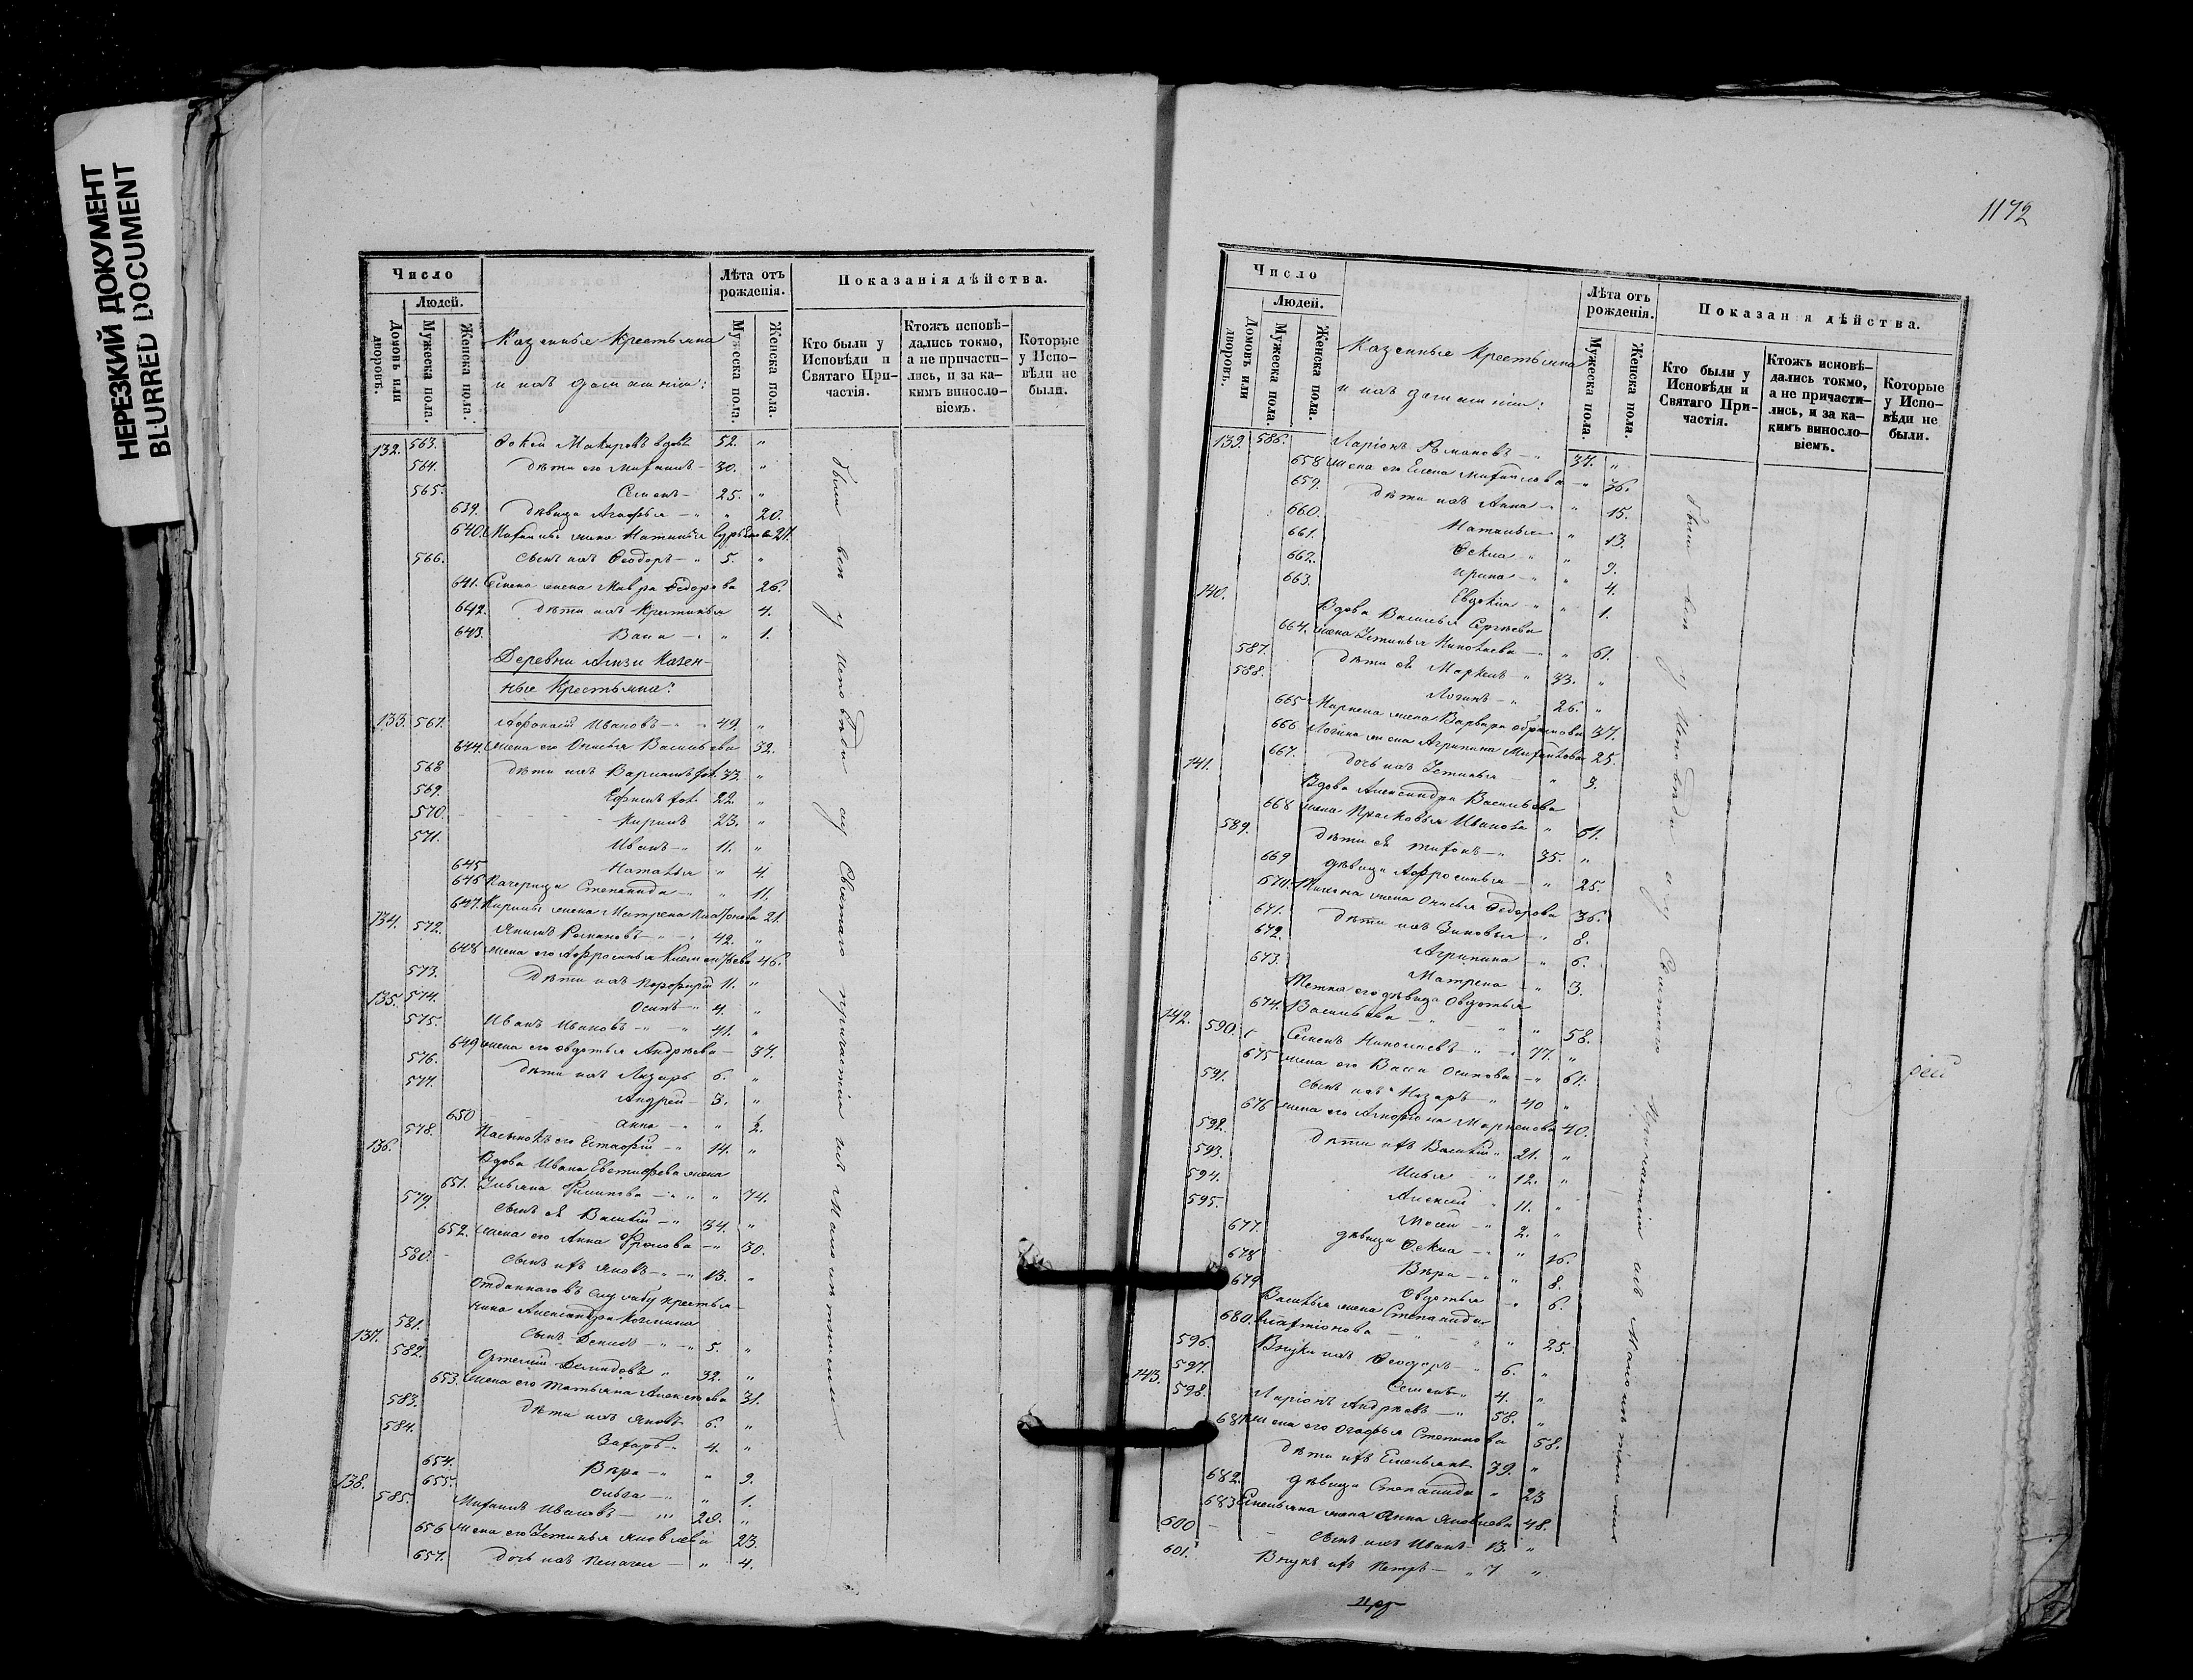 НЕРЕЗКИЙ ДОКУМЕНТ
BLURRED DOCUMENT
Число
Людей.
Домовъ или дворовъ.
Мужеска пола.
Женска пола.
Казенные Крестьяна
и ихъ домашнiи:
Лѣта отъ рожденія.
Мужеска пола.
Женска пола.
Показанія дѣйства.
Кто были у Исповѣди и Святаго Причастія.
Ктожъ исповѣдались токмо, а не причастились, и за какимъ винословіемъ.
Которые у Исповѣди не были.
132. 563. Фокей Макаровъ вдовъ 52. "
564. дѣти его Михаилъ - 30. "
565. Семенъ - 25. "
639. дѣвица Агафья - " " 20.
640. Михаилы жена Наталья 27.
566. сынъ ихъ Феодоръ - " 5. "
641. Семена жена Мавра Федорова 26.
642. дѣти ихъ Крестинья 4.
643. Васа - " " 1.
Деревни Казен-
ные Крестьяна:
133. 567. Афонасiй Ивановъ - " - 49. "
644. жена его Онисья Васильева 52.
568 дѣти ихъ 33. "
569. Ефимъ 22. "
570. Кирилъ 23. "
571. Иванъ - " 11. "
645 Наталья " 4.
646 Степанида - " " 11.
647. Кирилы жена Матрена Платонова 21.
134. 572. Якимъ Романовъ - " - " 42. "
648 жена его Афросинья 46.
573. Дѣти ихъ Порфирiй 11. "
135. 574. Осипъ - " 4. "
575. Иванъ Ивановъ - " - " 41. "
649 жена его Овдотья Андрѣева - 37.
576. дѣти ихъ Лазарь 6. "
577. Андрей - 3. "
650 Анна - " " 2.
578. Пасынокъ его Естафiй - " 14. "
136. Вдова Ивана жена
651. Ульяна Филипова - " " " 74.
579. Сынъ ея Василiй - " 34. "
652. жена его Анна Фролова - " 30.
580. Сынъ ихъ Яковъ - " - " 13. "
Отданнаго въ службу крестья-
нина Александра
581. Сынъ Денисъ - " - " 5. "
137. 582. Ортемiй Демидовъ " 32. "
653. жена его Татьяна Алексѣева 31.
583. дѣти ихъ Яковъ 6. "
584. Захаръ - " 4. "
654. Вѣра - " " 9.
655. Ольга - " " 1.
138. 585. Михаилъ Ивановъ - " " 20. "
656 жена его Устинья Яковлева 23.
657. дочь ихъ Пелагея - " 4.
были вси у исповѣди и у Святаго причастiя
1172
Число
Людей.
Домовъ или дворовъ.
Мужеска пола.
Женска пола.
Казенные Крестьяна
и ихъ домашнiи:
Лѣта отъ рожденія.
Мужеска пола.
Женска пола.
Показанія дѣйства.
Кто были у Исповѣди и Святаго Причастія.
Ктожъ исповѣдались токмо, а не причастились, и за какимъ винословіемъ.
Которые у Исповѣди не были.
139. 586. Ларiонъ Романовъ - " 37. "
658 жена его Елена Михайлова - " 36.
659. дѣти ихъ Анна - " " 15.
660. Наталья - " 13.
661. Фекла " " 9.
662. Ирина - " " 4.
663. Евдокiя - " " 1.
140. Вдова Василья Сергѣева
664. жена Устинья Николаева - " " 61.
587. дѣти ея Маркелъ " 33. "
588. Логинъ - " 26. "
665 Маркела жена Варвара 37.
666 Логина жена Агрипина Михайлова 25.
667. дочь ихъ Устинья - " 3.
141. Вдова Александра Васильева
668 жена Прасковья Иванова " 61.
589. дѣти ея Тихонъ - " 35. "
669 дѣвица Афросинья - " 25.
670. Тихона жена Онисья Федорова 36.
671. дѣти ихъ Зиновья - " 8.
672. Агрипина - " 6.
673. Матрена - " 3.
Тетка его дѣвица Овдотья
674. Васильева - " - " " 58.
142. 590. Семенъ Николаевъ - " - " 77. "
675 жена его Васса Осипова - " 61.
591. Сынъ ихъ Назаръ - " 40 "
676 жена его Маркелова 40.
592. Дѣти ихъ Василiй " 21. "
593. Илья - " 12. "
594. Алексей " 11. "
595. Мосей - " 2. "
677. дѣвица Фекла - " " 16.
678 Вѣра - " " 8.
679 Овдотья - " 6.
Василья жена Степанида
680. - " " " 25.
596. Внуки ихъ Феодоръ - " 6. "
597. Семенъ - " 4. "
143. 598. Ларiонъ Андрѣевъ - " 58. "
681 жена его Огафья Степанова 58.
дѣти ихъ Емельянъ 39. "
682. дѣвица Степанида " 23
683 Емельяна жена Анна Яковлева 48.
600 - сынъ ихъ Иванъ - 13. "
601. Внукъ ихъ Петръ - " 7 "
были вси у Исповѣди и у Святаго Причастiя
рей